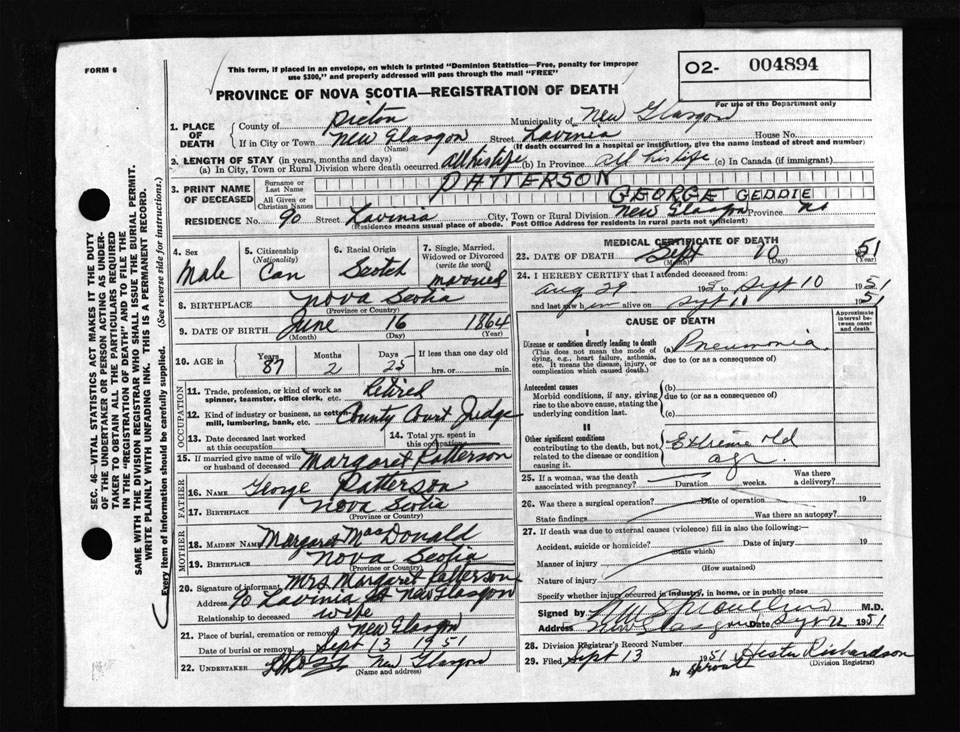 FORM 6
This form, if placed in an envelope, on which is printed "Dominion Statistics—Free, penalty for improper
use $300," and properly addressed will pass through the mail "FREE"
PROVINCE OF NOVA SCOTIA—REGISTRATION OF DEATH
02- 004894
For use of the Department only
1. PLACE OF DEATH
County of Pictou Municipality of New Glasgow
If in City or Town New Glasgow Street Lavinia House No.
(Name) (If death occurred in a hospital or institution, give the name instead of street and number)
2. LENGTH OF STAY (in years, months and days)
(a) In City, Town or Rural Division where death occurred all his life (b) In Province all his life (c) In Canada (if immigrant)
3. PRINT NAME OF DECEASED
Surname or Last Name PATTERSON
All Given or Christian Names GEORGE GEDDIE
RESIDENCE No. 90 Street Lavinia City, Town or Rural Division New Glasgow Province NS
(Residence means usual place of abode. Post Office Address for residents in rural parts not sufficient)
4. Sex Male
5. Citizenship (Nationality) Can
6. Racial Origin Scotch
7. Single, Married, Widowed or Divorced (write the word) married
8. BIRTHPLACE Nova Scotia
(Province or Country)
9. DATE OF BIRTH June 16 1864
(Month) (Day) (Year)
10. AGE in Years 87 Months 2 Days 25 If less than one day old
hrs. or min.
OCCUPATION
11. Trade, profession, or kind of work as spinner, teamster, office clerk, etc. Retired
12. Kind of industry or business, as cotton mill, lumbering, bank, etc. County Court Judge
13. Date deceased last worked at this occupation
14. Total yrs. spent in this occupation
15. If married give name of wife or husband of deceased Margaret Patterson
FATHER
16. Name George Patterson
17. Birthplace Nova Scotia
(Province or Country)
MOTHER
18. Maiden Name Margaret MacDonald
19. Birthplace Nova Scotia
(Province or Country)
20. Signature of informant Mrs Margaret Patterson
Address 90 Lavinia St New Glasgow
Relationship to deceased wife
21. Place of burial, cremation or removal New Glasgow
Date of burial or removal Sept 13 1951
22. UNDERTAKER New Glasgow
(Name and address)
MEDICAL CERTIFICATE OF DEATH
23. DATE OF DEATH Sept 10 51
(Month) (Day) (Year)
24. I HEREBY CERTIFY that I attended deceased from:
Aug 29 195 to Sept 10 1951
and last saw h im alive on Sept 11 1951
CAUSE OF DEATH
Approximate interval between onset and death
I
Disease or condition directly leading to death
(This does not mean the mode of dying, e.g., heart failure, asthenia, etc. It means the disease, injury, or complication which caused death.)
(a) Pneumonia
due to (or as a consequence of)
Antecedent causes
Morbid conditions, if any, giving rise to the above cause, stating the underlying condition last.
(b)
due to (or as a consequence of)
(c)
II
Other significant conditions
contributing to the death, but not related to the disease or condition causing it.
Extreme old age
25. If a woman, was the death associated with pregnancy? Duration weeks. Was there a delivery?
26. Was there a surgical operation? Date of operation 19
State findings Was there an autopsy?
27. If death was due to external causes (violence) fill in also the following:
Accident, suicide or homicide? Date of injury 19
(State which)
Manner of injury
(How sustained)
Nature of injury
Specify whether injury occurred in industry, in home, or in public place
Signed by M.D.
Address New Glasgow Date Sept 1951
28. Division Registrar's Record Number
29. Filed Sept 13 1951 Hester Richardson
(Division Registrar)
SEC. 46—VITAL STATISTICS ACT MAKES IT THE DUTY
OF THE UNDERTAKER OR PERSON ACTING AS UNDER-
TAKER TO OBTAIN ALL THE PARTICULARS REQUIRED
IN THE "REGISTRATION OF DEATH" AND TO FILE THE
SAME WITH THE DIVISION REGISTRAR WHO SHALL ISSUE THE BURIAL PERMIT.
WRITE PLAINLY WITH UNFADING INK. THIS IS A PERMANENT RECORD.
Every item of Information should be carefully supplied. (See reverse side for instructions.)